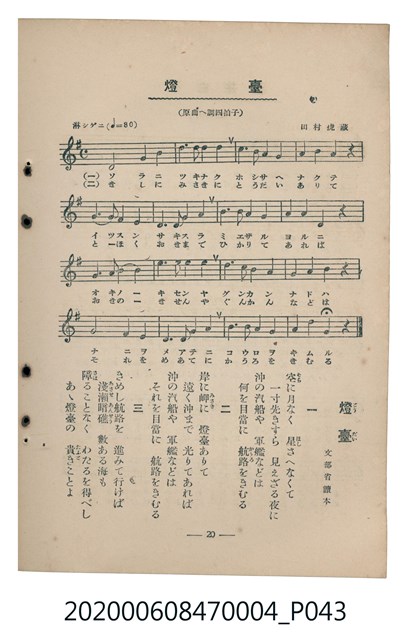 燈臺
(原曲ヘ調四拍子)
淋シゲニ(♩=80)
田村虎藏
(一)ソラニ ツキナク ホシサヘ ナクテ
(二)きしに みさきに とうだい ありて
イツスン サキスラ ミエザル ヨルニ
とーほく おきまで ひかりて あれば
オキノー キセンヤ グンカン ナドハ
おきのー きせんや ぐんかん などは
ナニヲ メアテニ コウロヲ キムル
それを めあてに こうろを きむる
燈臺
文部省讀本
一
空に月なく 星さへなくて
一寸先きすら 見えざる夜に
沖の汽船や 軍艦などは
何を目當に 航路をきむる
二
岸に岬に 燈臺ありて
遠く沖まで 光りてあれば
沖の汽船や 軍艦などは
それを目當に 航路をきむる
三
きめし航路を 進みて行けば
淺瀬暗礁 數ある海も
障ることなく わたるを得べし
あゝ燈臺の 貴きことよ
— 20 —
202000608470004_P043